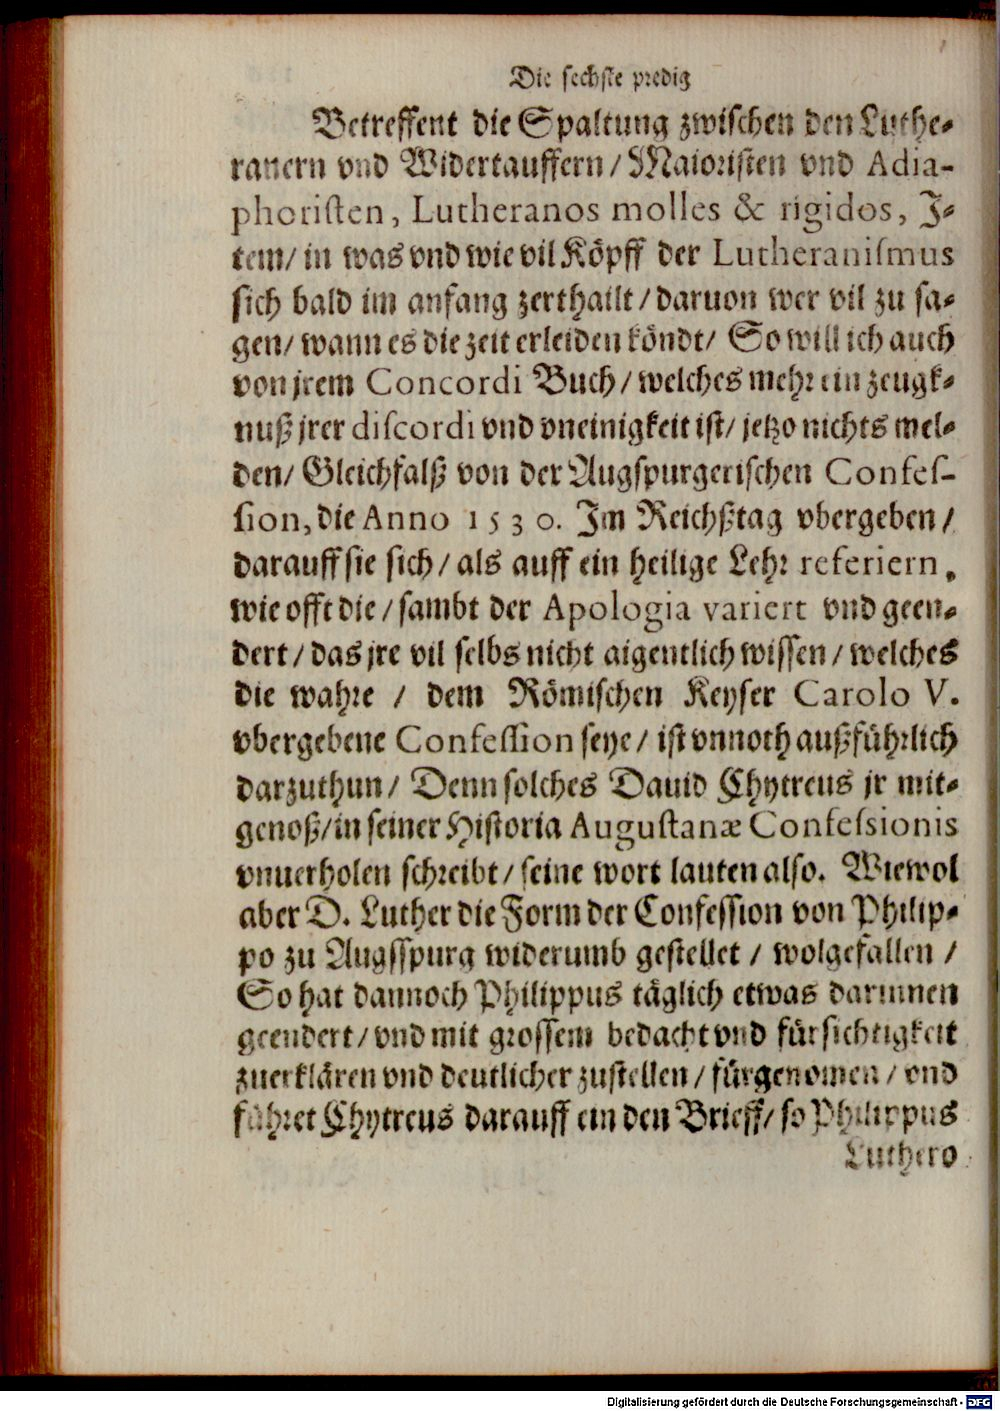 Die sechste predig
Betreffent die Spaltung zwischen den Luthe-
ranern vnd Widertauffern / Maioristen vnd Adia-
phoristen, Lutheranos molles & rigidos, J-
tem / in was vnd wie vil Köpff der Lutheranismus
sich bald im anfang zerthailt / daruon wer vil zu sa-
gen / wann es die zeit erleiden köndt / So will ich auch
von jrem Concordi Buch / welches mehr ein zeugk-
nuß jrer discordi vnd vneinigkeit ist / jetzo nichts mel-
den / Gleichfalß von der Augspurgerischen Confes-
sion, die Anno 1530. Jm Reichßtag vbergeben /
darauff sie sich / als auff ein heilige Lehr referiern,
wie offt die / sambt der Apologia variert vnd geen-
dert / das jre vil selbs nicht aigentlich wissen / welches
die wahre / dem Römischen Keyser Carolo V.
vbergebene Confession seye / ist vnnoth außführlich
darzuthun / Denn solches Dauid Chytreus jr mit-
genoß / in seiner Historia Augustanæ Confessionis
vnuerholen schreibt / seine wort lauten also. Wiewol
aber D. Luther die Form der Confession von Philip-
po zu Augsspurg widerumb gestellet / wolgefallen /
So hat dannoch Philippus täglich etwas darinnen
geendert / vnd mit grossem bedacht vnd fürsichtigkeit
zuerklären vnd deutlicher zustellen / fürgenomen / vnd
führet Chytreus darauff ein den Brieff / so Philippus
Luthero
Digitalisierung gefördert durch die Deutsche Forschungsgemeinschaft - DFG